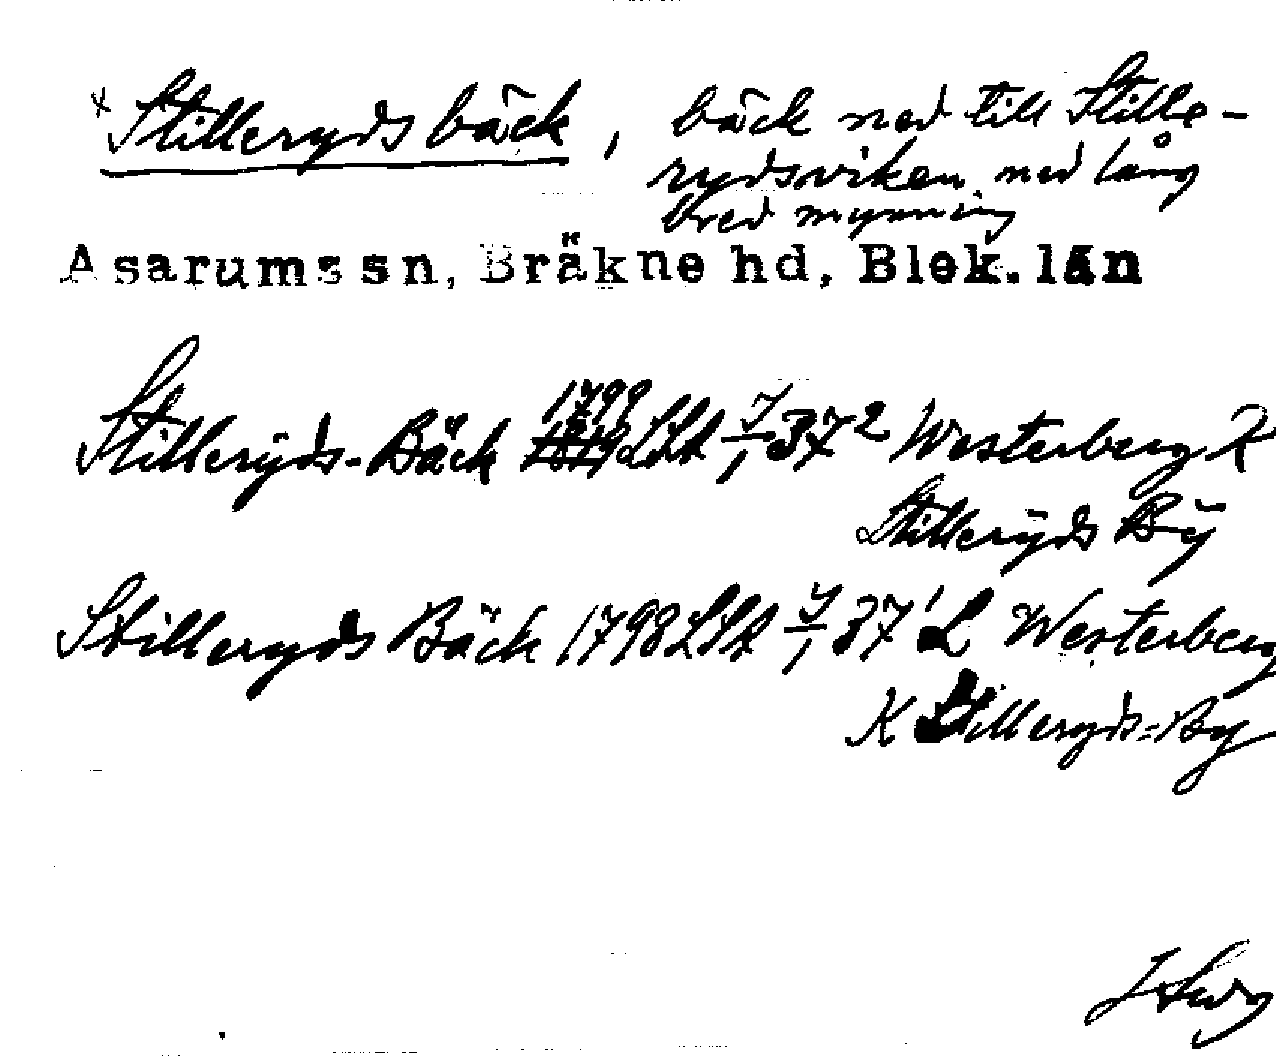 × Stillerydsbäck, bäck ned till Stille-
rydsviken med lång
bred mynning
Asarums sn, Bräkne hd, Blek. län
Stillerÿds-Bäck 1799 LSA 37² Westerberg K
Stillerÿds Bÿ
Stilleryds Bäck 1798 LSA 37¹ L Westerberg
K Stilleryds=By